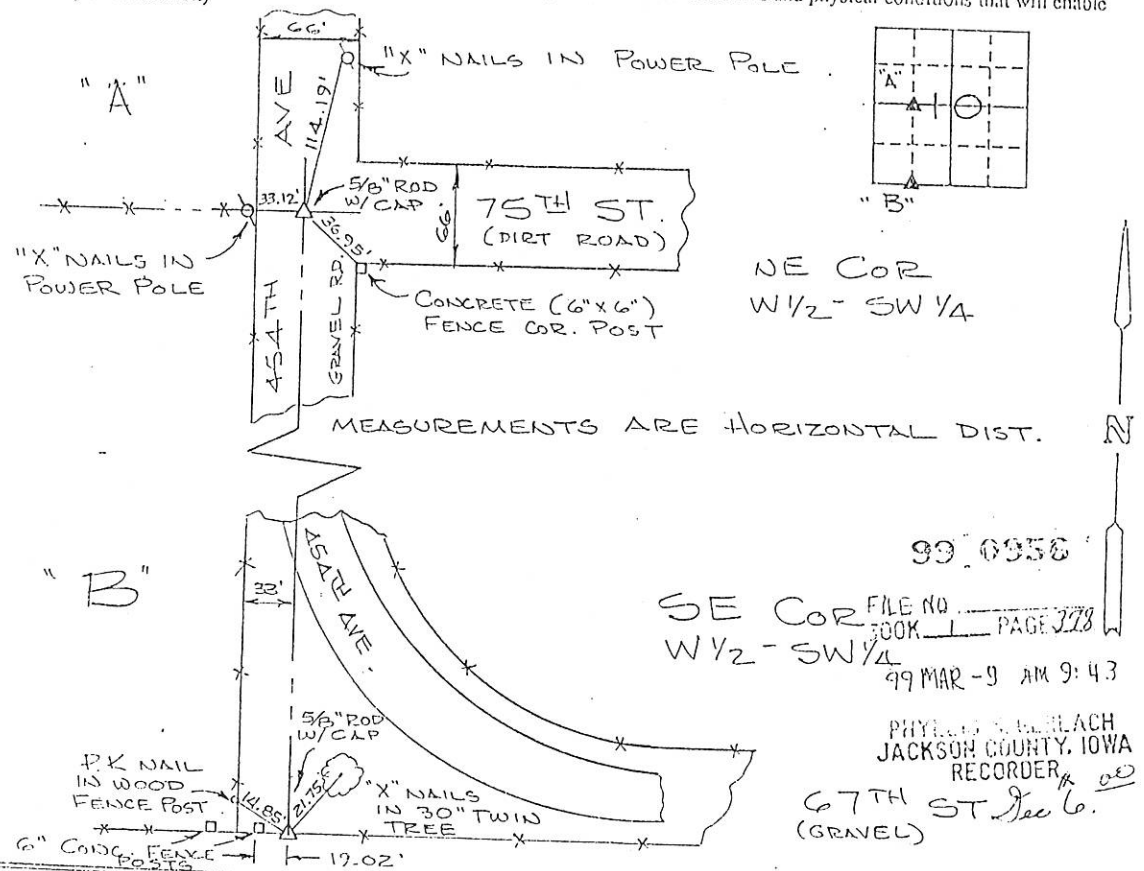 and physical conditions that will enable
66'
"X" NAILS IN POWER POLE .
"A"
AVE
114.19'
"A"
"B"
33.12'
5/8" ROD
W/ CAP
36.95'
66'
75TH ST.
(DIRT ROAD)
"X" NAILS IN
POWER POLE
NE COR
W 1/2 - SW 1/4
CONCRETE (6" X 6")
FENCE COR. POST
454TH
GRAVEL RD.
MEASUREMENTS ARE HORIZONTAL DIST.
N
"B"
33'
454TH AVE.
99 0956
SE COR
W 1/2 - SW 1/4
FILE NO
BOOK 1 PAGE 328
99 MAR -9 AM 9:43
JACKSON COUNTY, IOWA
RECORDER
5/8" ROD
W/ CAP
P.K NAIL
IN WOOD
FENCE POST
14.85'
21.75'
"X" NAILS
IN 30" TWIN
TREE
67TH ST
(GRAVEL)
6" CONC. FENCE
POSTS
19.02'